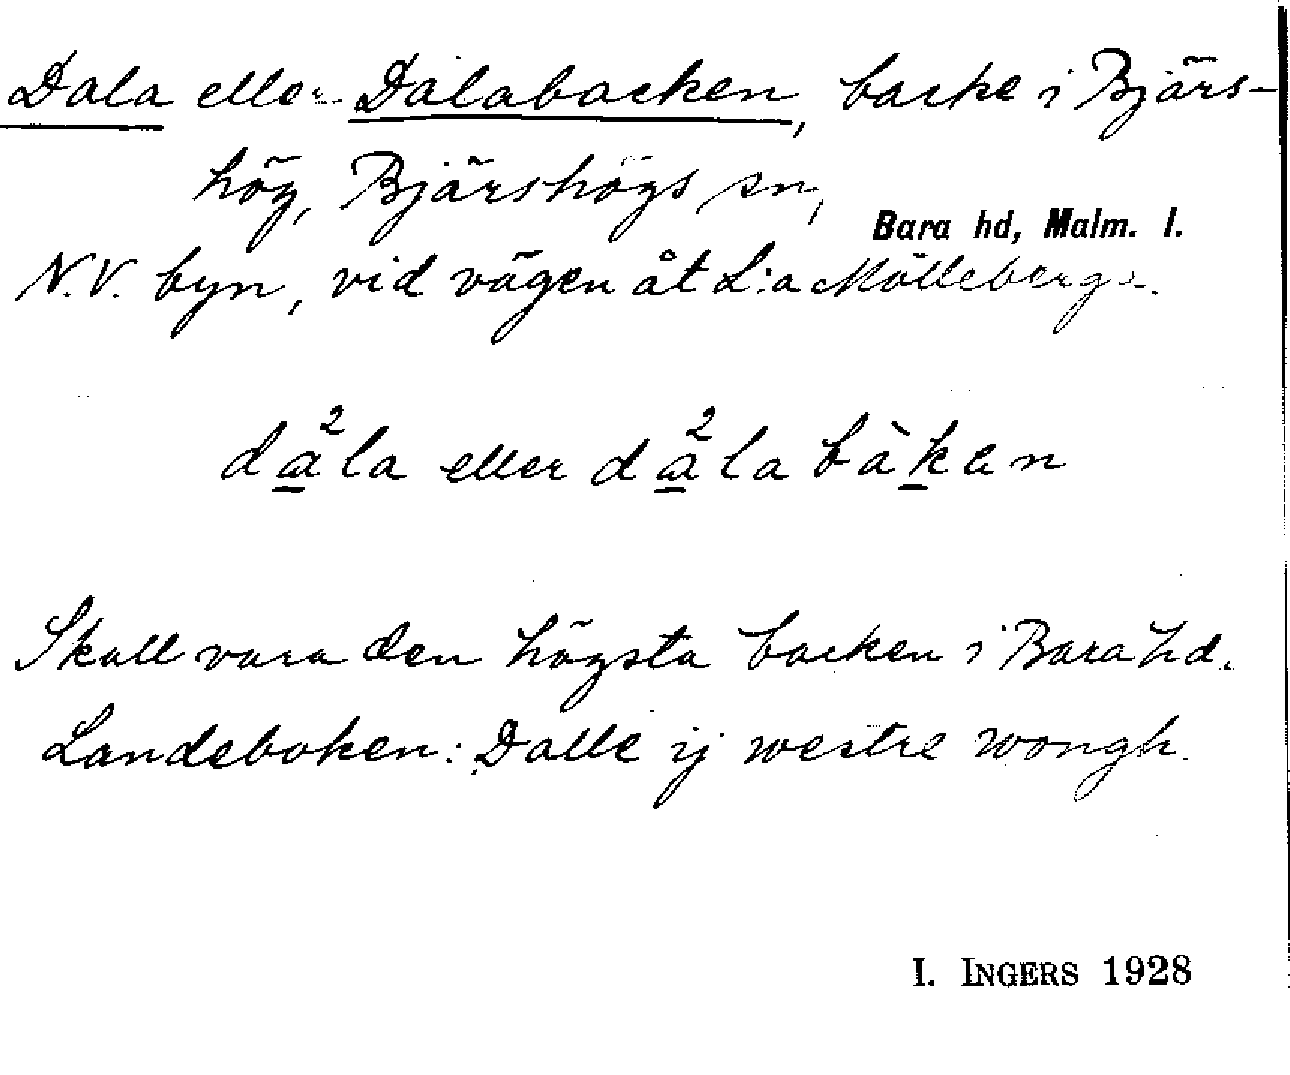 Dala eller Dalabacken, backe i Bjärs-
hög, Bjärshögs sn,
Bara hd, Malm. l.
N.V. byn, vid vägen åt L:a Mölleberga.
da²la eller da²la bàkan
Skall vara den högsta backen i Bara hd.
Landeboken: Dalle ij westre wongh.
I. INGERS 1928